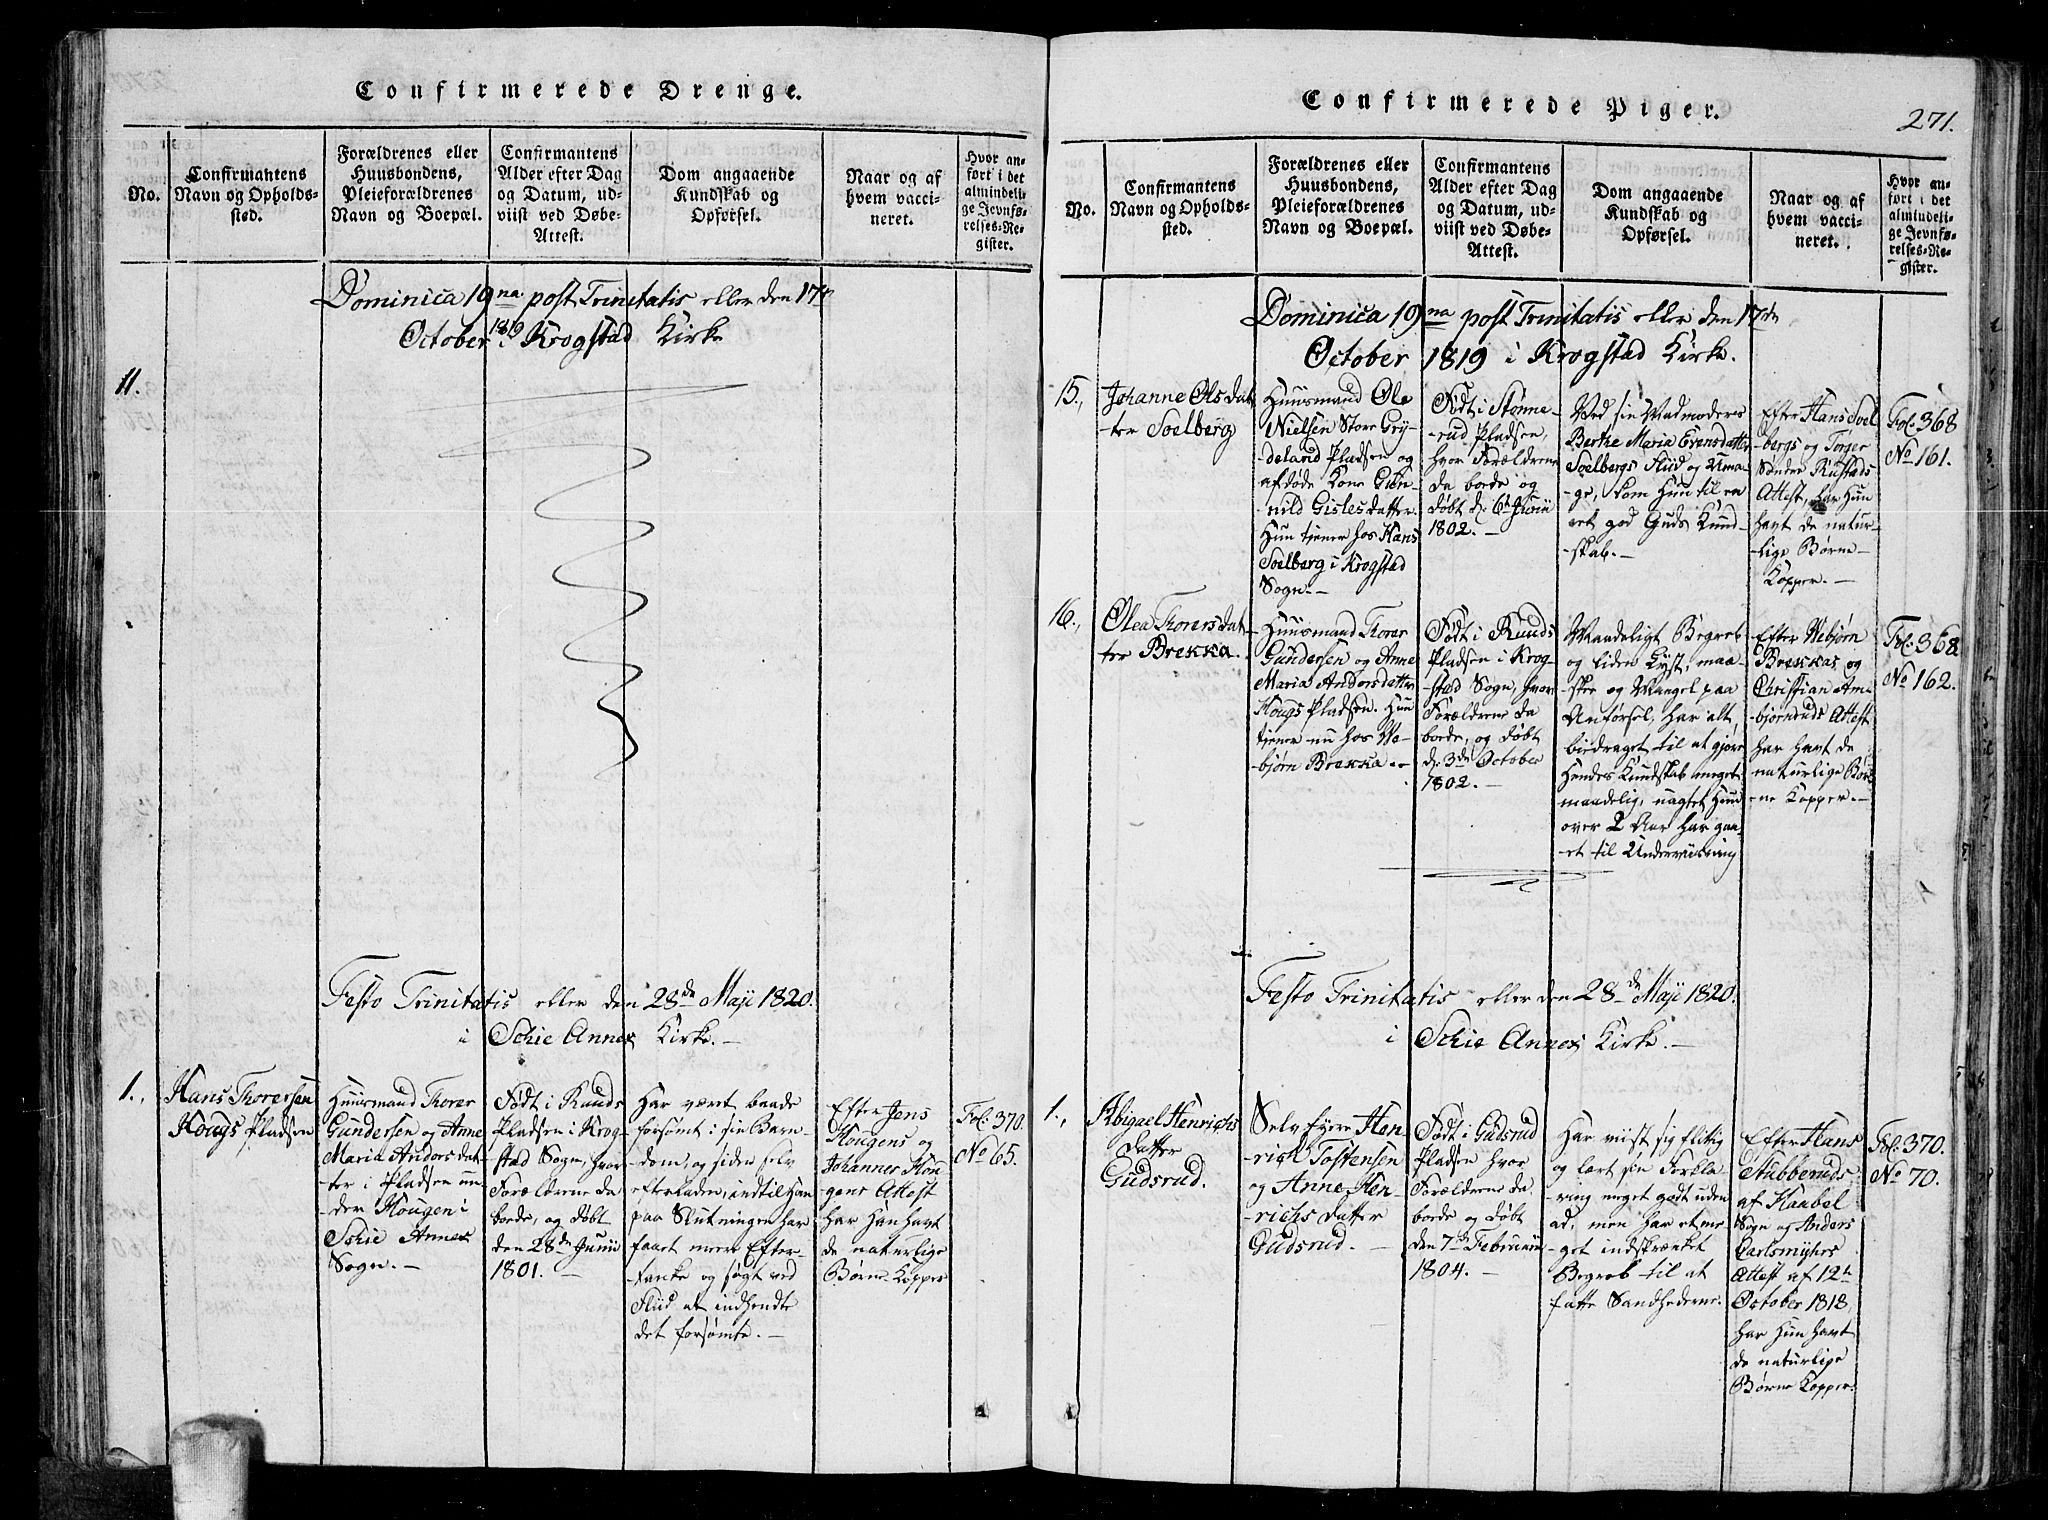 Confirmerede Drenge.
No.
Confirmantens
Navn og Opholds-
sted.
Forældrenes eller
Huusbondens,
Pleieforældrenes
Navn og Boepæl.
Confirmantens
Alder efter Dag
og Datum, ud-
viist ved Døbe-
Attest.
Dom angaaende
Kundskab og
Opførsel.
Naar og af
hvem vacci-
neret.
Hvor an-
ført i det
almindeli-
ge Jevnfø-
relses-Re-
gister.
Dominica 19na post Trinitatis eller den 17de
October 1819 i Krogstad Kirke
11.
Festo Trinitatis eller den 28de Maji 1820.
i Schie Annex Kirke.-
1.,
Hans Thorersen
Hougs Pladsen
Huusmand Thorer
Gundersen og Anne
Maria Andersdat-
ter i Pladsen un-
der Hougen i
Schie Annex
Sogn.-
Født i Ruuds
Pladsen i Krog-
stad Sogn, hvor
Forældrene da
boede, og døbt
den 28de Junii
1801.-
Har været baade
forsømt i sin Barn-
dom, og siden selv
efterladen, indtil Han
paa Slutningen har
faaet mere Efter-
tanke og søgt ved
Fliid at indhendte
det forsømte.-
Efter Jens
Hougens og
Johannes Hou-
gens Attest
har Han havt
de naturlige
Børne-Kopper
Fol. 370.
No 65.
Confirmerede Piger.
271.
No.
Confirmantens
Navn og Opholds-
sted.
Forældrenes eller
Huusbondens,
Pleieforældrenes
Navn og Boepæl.
Confirmantens
Alder efter Dag
og Datum, ud-
viist ved Døbe-
Attest.
Dom angaaende
Kundskab og
Opførsel.
Naar og af
hvem vacci-
neret.
Hvor an-
ført i det
almindeli-
ge Jevnfø-
relses-Re-
gister.
Dominica 19na post Trinitatis eller den 17de
October 1819 i Krogstad Kirke.
15.,
Johanne Olsdat-
ter Soelberg
Huusmand Ole
Nielsen Store Gry-
deland Pladsen og
afdøde Kone Gun-
nild Gislesdatter.
Hun tjener hos Hans
Soelberg i Krogstad
Sogn.-
Født i Stønne-
rud Pladsen,
hvor Forældrene
da boede og
døbt d. 6te Junii
1802.-
Ved sin Madmoders
Berthe Maria Evensdatter
Soelbergs Fliid og Uma-
ge, kom Hun til en
ret god Guds Kund-
skab.-
Efter Hans Soel-
bergs og Torger
Søndre Rustads
Attest, har Hun
havt de natur-
lige Børne-
Kopper.-
Fol. 368
No 161.
16.,
Olea Thorersdat-
ter Brekka.
Huusmand Thorer
Gundersen og Anne
Maria Andersdatter
Hougs Pladsen. Hun
tjener nu hos We-
bjørn Brekka.-
Født i Ruuds
Pladsen i Krog-
stad Sogn, hvor
Forældrene da
boede, og døbt
d. 3de October
1802.-
Maadeligt Begreb
og liden Lyst, maa-
skee og Mangel paa
Anførsel, har alt
biedraget til at gjøre
Hendes Kundskab meget
maadelig, uagtet Hun
over 2 Aar har gaa-
et til Underviisning
Efter Webjørn
Brekkas og
Christian Am-
bjørnruds Attest
har havt de
naturlige Bør-
ne Kopper.-
Fol. 368.
No 162.
Festo Trinitatis eller den 28de Maji 1820.
i Schie Annex Kirke.-
1.,
Abigael Henrichs
Datter
Gudsrud.
Selv Eyere Hen-
rich Tostensen
og Anne Hen-
richs Datter
Gudsrud.-
Født i Gudsrud
Pladsen hvor
Forældrene da
boede og døbt
den 7de Februarii
1804.-
Har viist sig flittig
og lært sin Forkla-
ring meget godt uden
ad, men har et me-
get indskrænket
Begreb til at
fatte Sandhederne.
Efter Hans
Stubberuds
af Haabøl
Sogn og Anders
Carlsmyhrs
Attest af 12te
October 1818,
har Hun havt
de naturlige
Børne Kopper.
Fol. 370.
No 70.